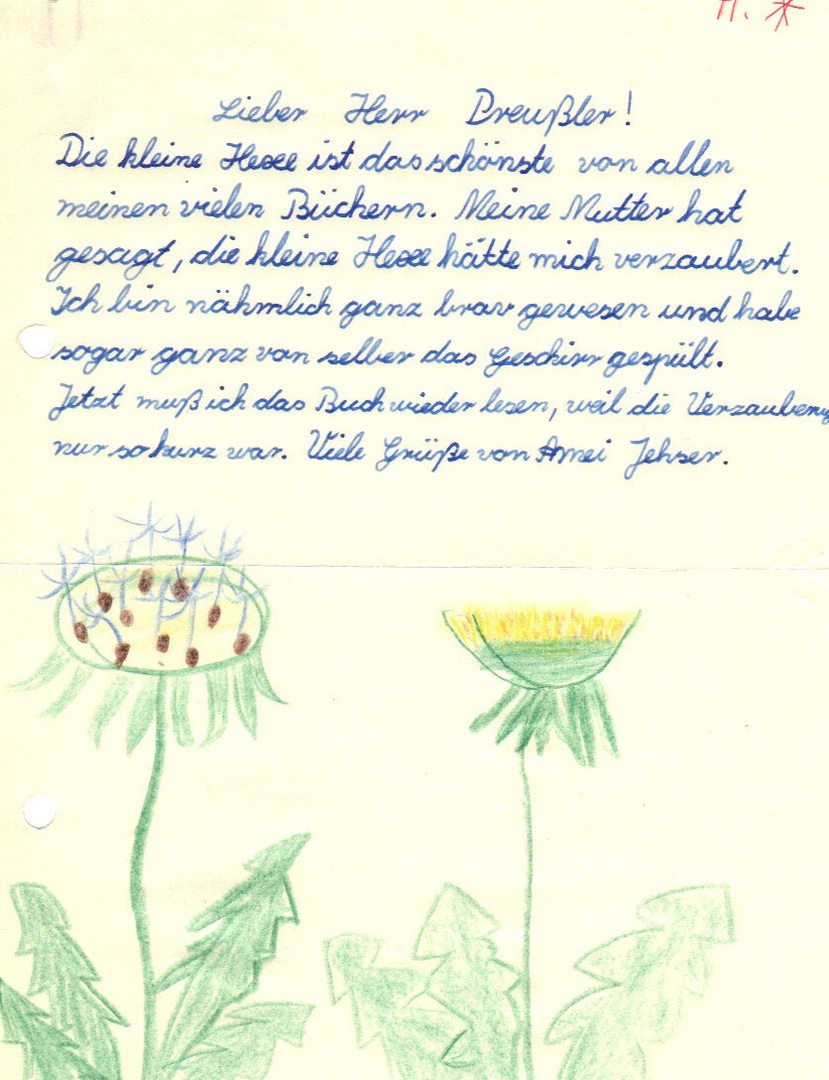 H. *
Lieber Herr Preußler!
Die kleine Hexe ist das schönste von allen
meinen vielen Büchern. Meine Mutter hat
gesagt, die kleine Hexe hätte mich verzaubert.
Ich bin nähmlich ganz brav gewesen und habe
sogar ganz von selber das Geschirr gespült.
Jetzt muß ich das Buch wieder lesen, weil die Verzauberung
nur so kurz war. Viele Grüße von Amei Jehser.